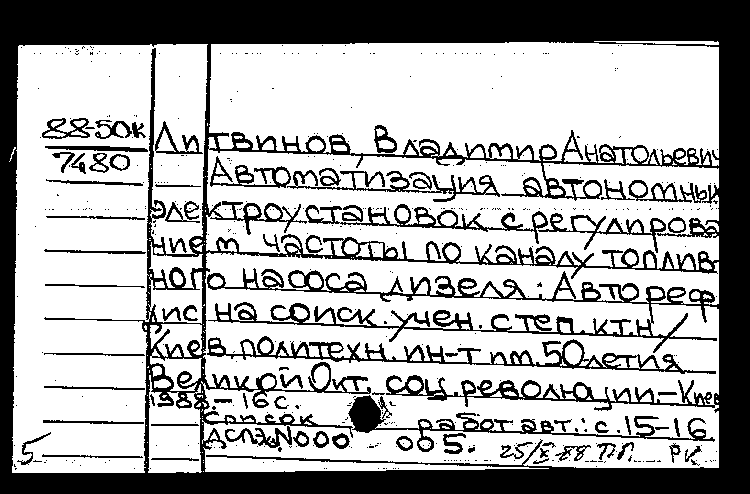 88-50к
7480
Литвинов, Владимир Анатольевич
Автоматизация автономных
электроустановок с регулирова
нием частоты по каналу топлив-
ного насоса дизеля: Автореф.
дис на соиск. учен. степ. к.т.н /
Киев. политехн. ин-т им. 50летия
Великой Окт. соц. революции.-Киев
1988-16 с.
Список работ авт.: с.15-16
ДСП экз N000 005.
5 25/X-88 П.П. РК